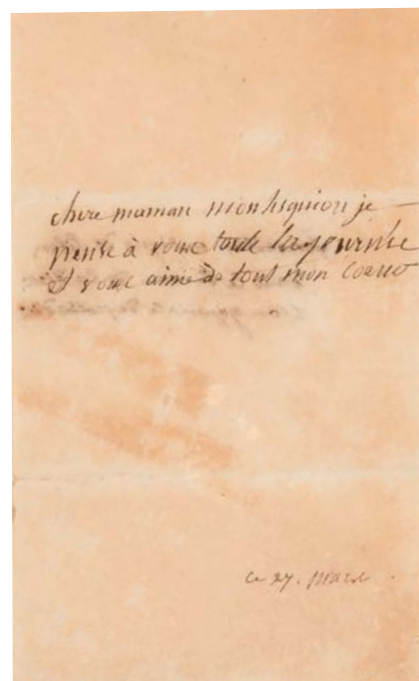 chere maman montesquiou je
pense à vous toute la journée
et vous aime de tout mon coeur
ce 27. mars